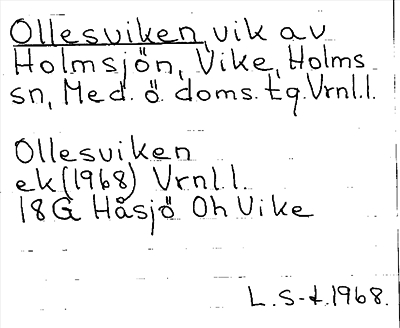 Ollesviken, vik av
Holmsjön, Vike, Holms
sn, Med. ö. doms. tg. Vrnl.l.
Ollesviken
ek (1968) Vrnl.l.
18G Håsjö Oh Vike
L. S-t. 1968.